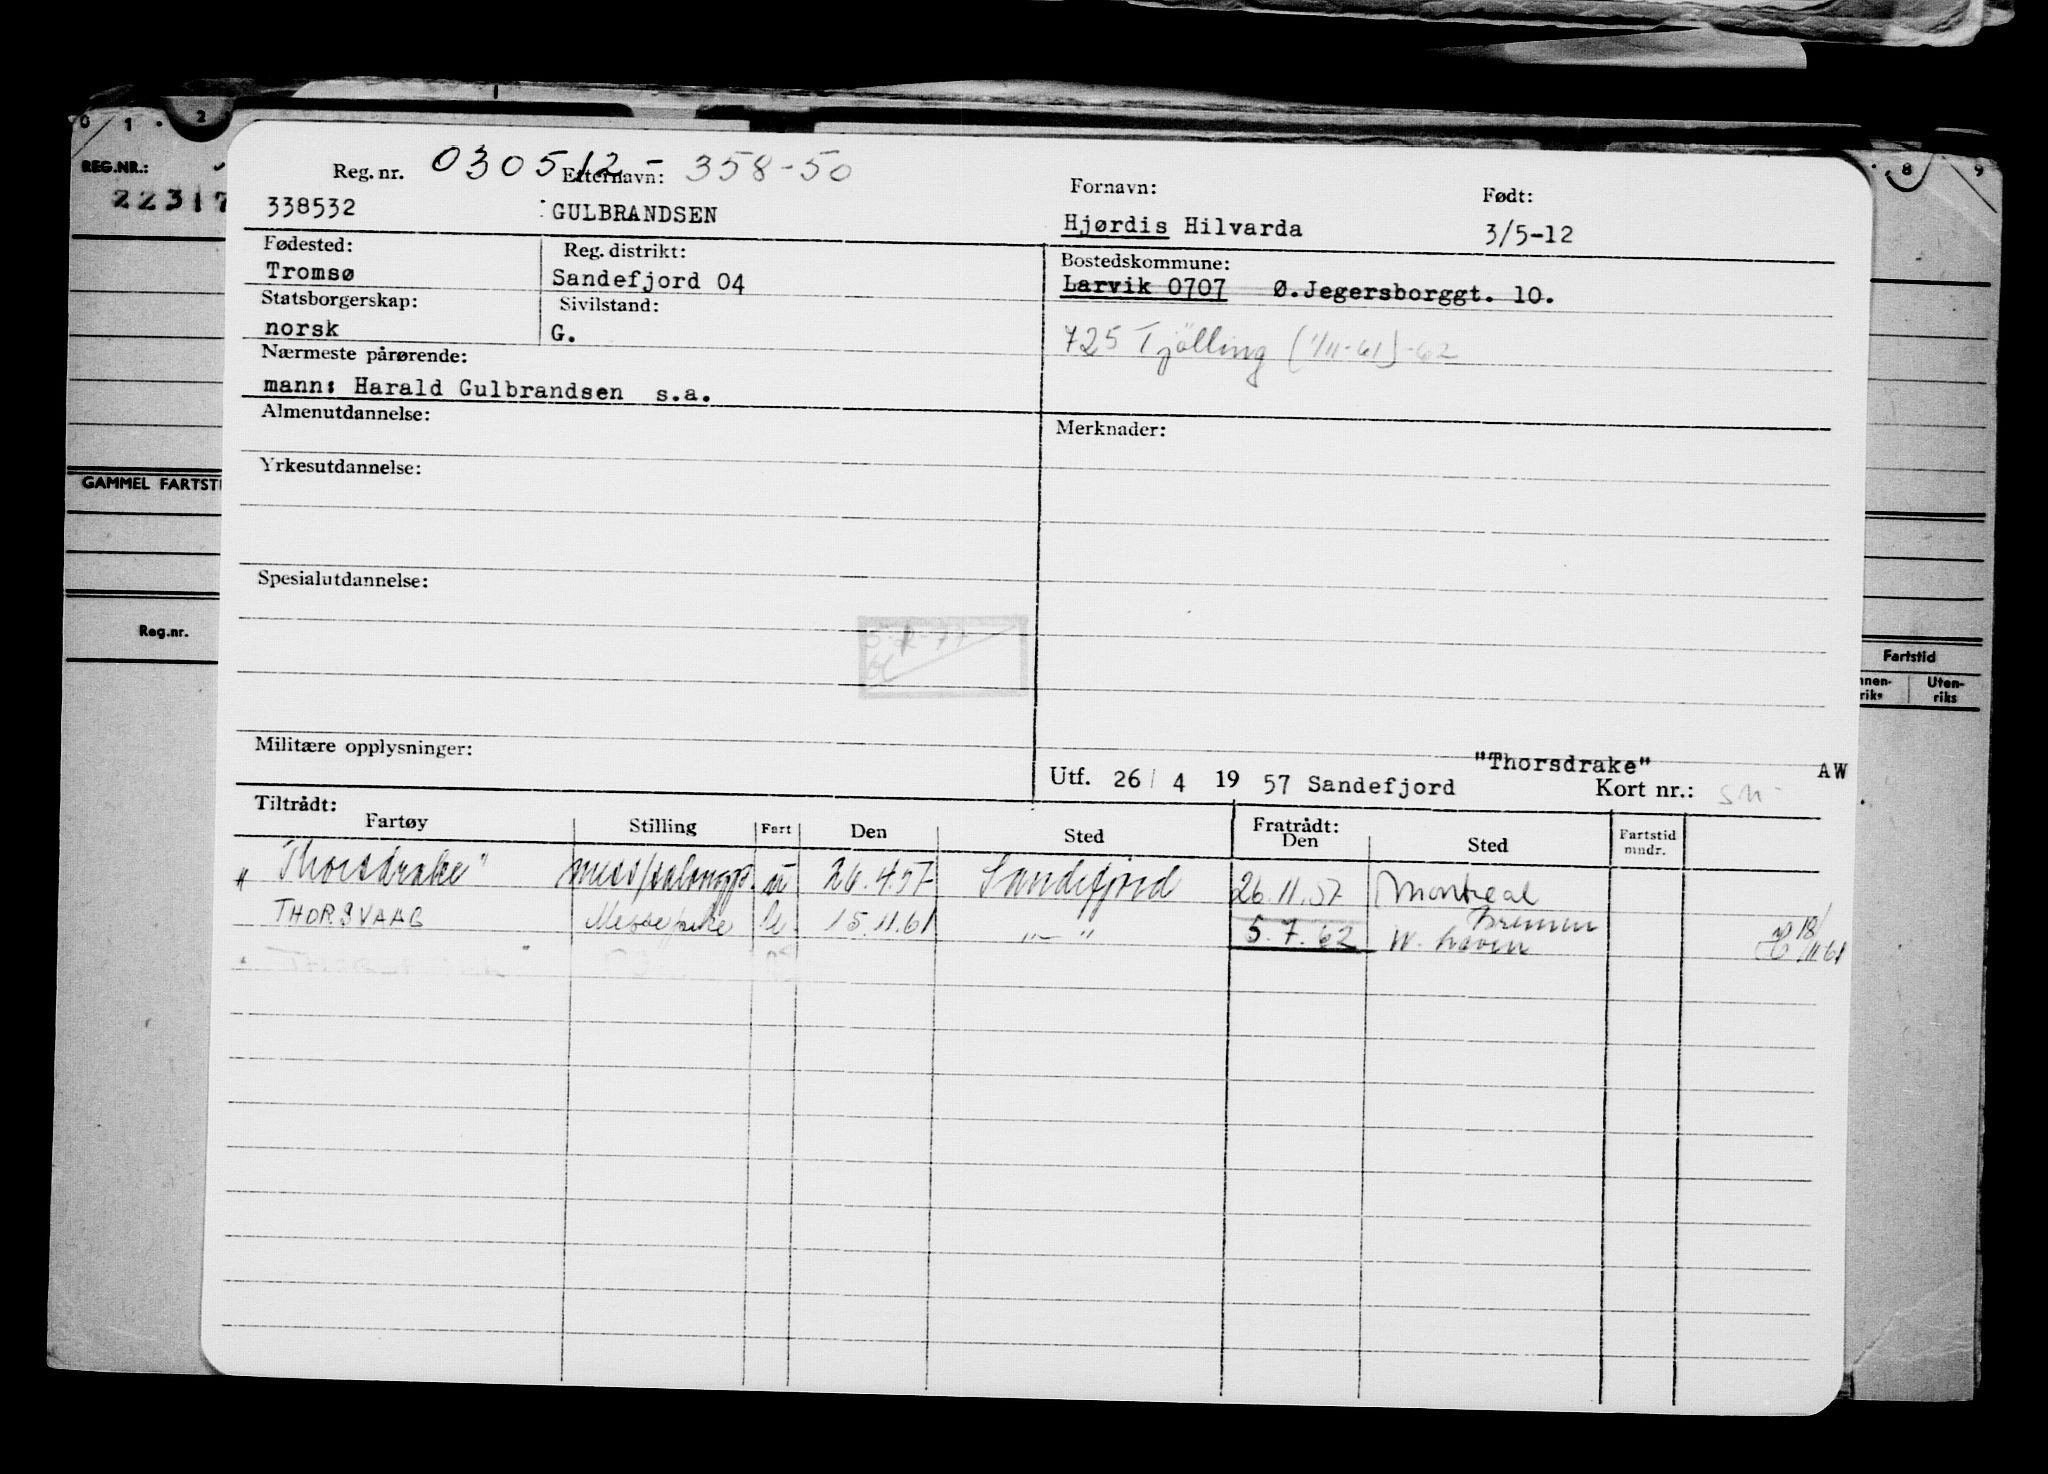 0 1 2 8 9
REG.NR.:
22317
Reg. nr. 030512-358-50
338532
Etternavn:
GULBRANDSEN
Fornavn:
Hjørdis Hilvarda
Født:
3/5-12
Fødested:
Tromsø
Reg. distrikt:
Sandefjord 04
Bostedskommune:
Larvik 0707 Ø.Jegersborggt. 10.
Statsborgerskap:
norsk
Sivilstand:
G.
725 Tjølling (1/11-61)-62
Nærmeste pårørende:
mann: Harald Gulbrandsen s.a.
Almenutdannelse:
Merknader:
Yrkesutdannelse:
GAMMEL FARTSTI
Spesialutdannelse:
Reg.nr.
Fartstid
nnen-
riks
Uten-
riks
Militære opplysninger:
"Thorsdrake" AW
Utf. 26/ 4 19 57 Sandefjord Kort nr.:
Tiltrådt:
Fartøy Stilling Fart Den Sted Fratrådt: Den Sted Fartstid mndr.
"Thorsdrake" mess/salongp. u 26.4.57 Sandefjord 26.11.57 Montreal
THORSVAAG Messepike u. 15.11.61 -"- 5.7.62 Bremen
W. haven 18/11 61